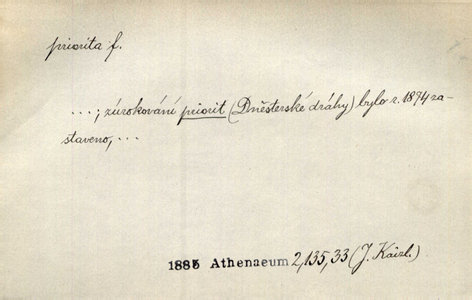 priorita f.
...; zúrokování priorit (Dněsterské dráhy) bylo r. 1874 za-
staveno, ...
1885 Athenaeum 2,135,33 (J. Kaizl.)